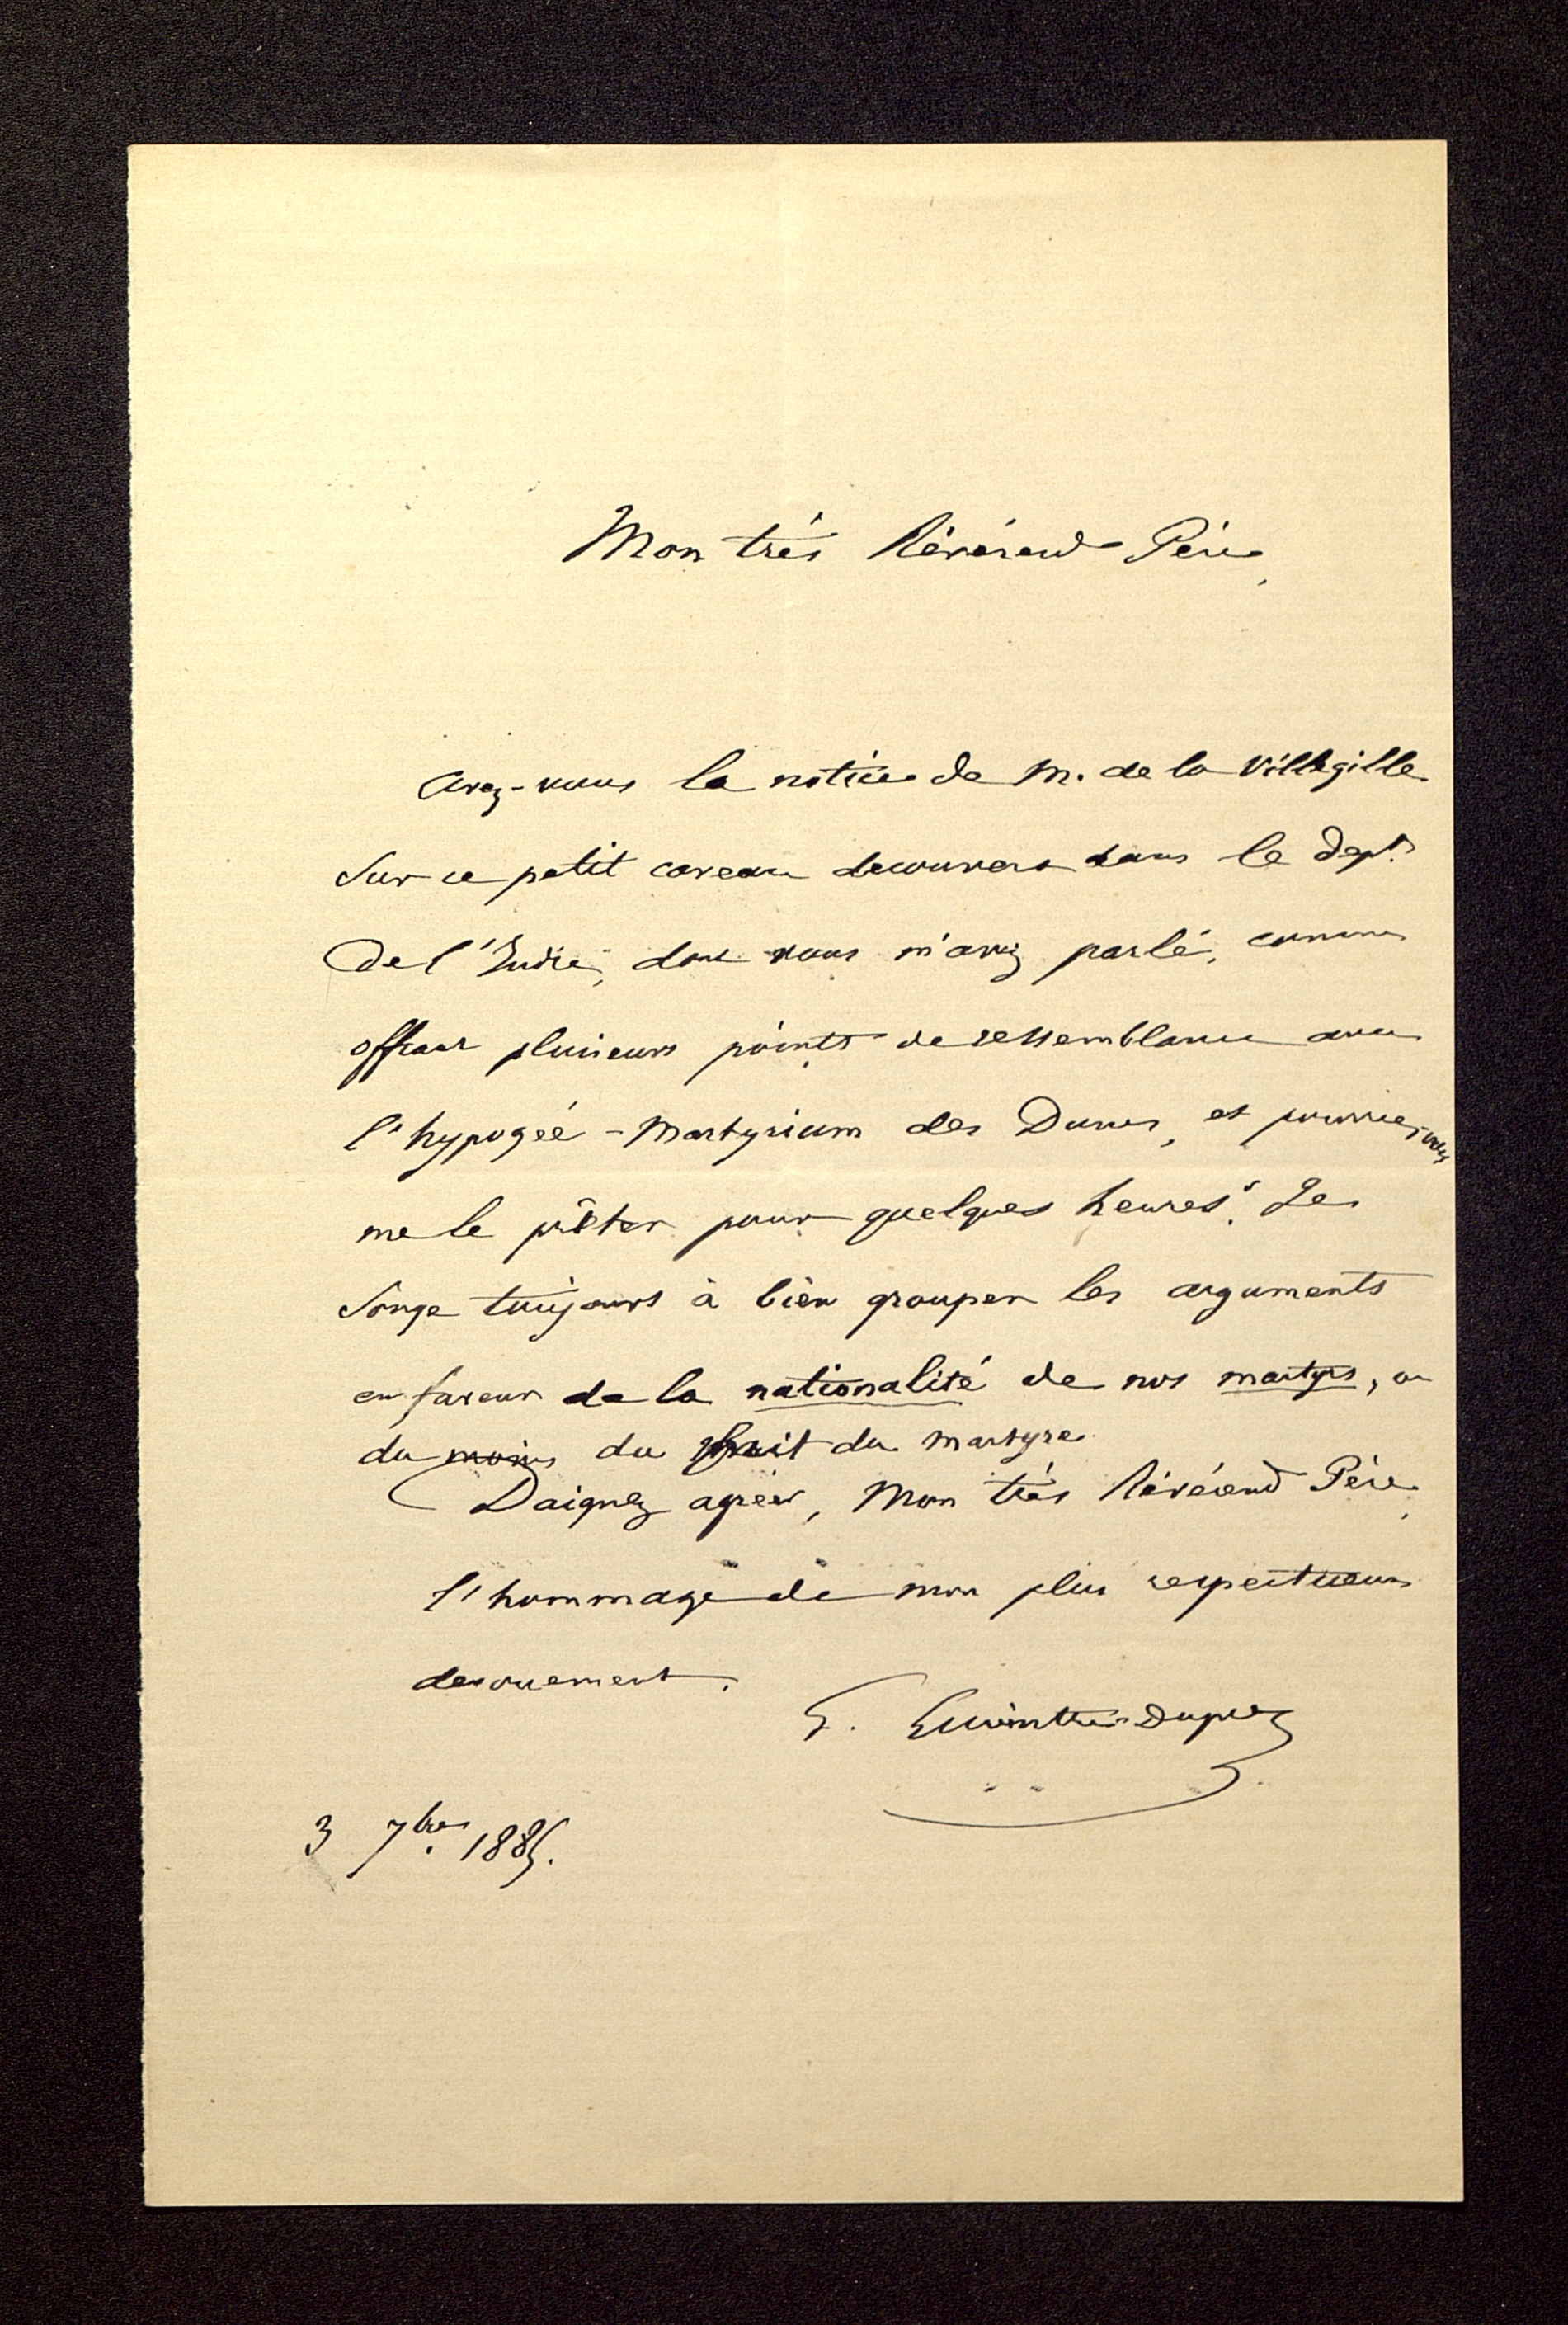 Mon très Révérend Père,
Avez-vous la notice de M. de la Villegille
sur ce petit caveau decouvert dans le Dept.
de l'Indre, dont vous m'avez parlé, comme
offrant plusieurs points de ressemblance avec
l'hypogée-Martyrium des Dunes, et pourriez-vous
me le prêter pour quelques heures? Je
songe toujours à bien grouper les arguments
en faveur de la nationalité de nos martyrs, ou
du moins du fruit du martyre.
Daignez agréer, Mon très Révérend Père,
l'hommage de mon plus respectueux
devouement.
3 7bre 1885.